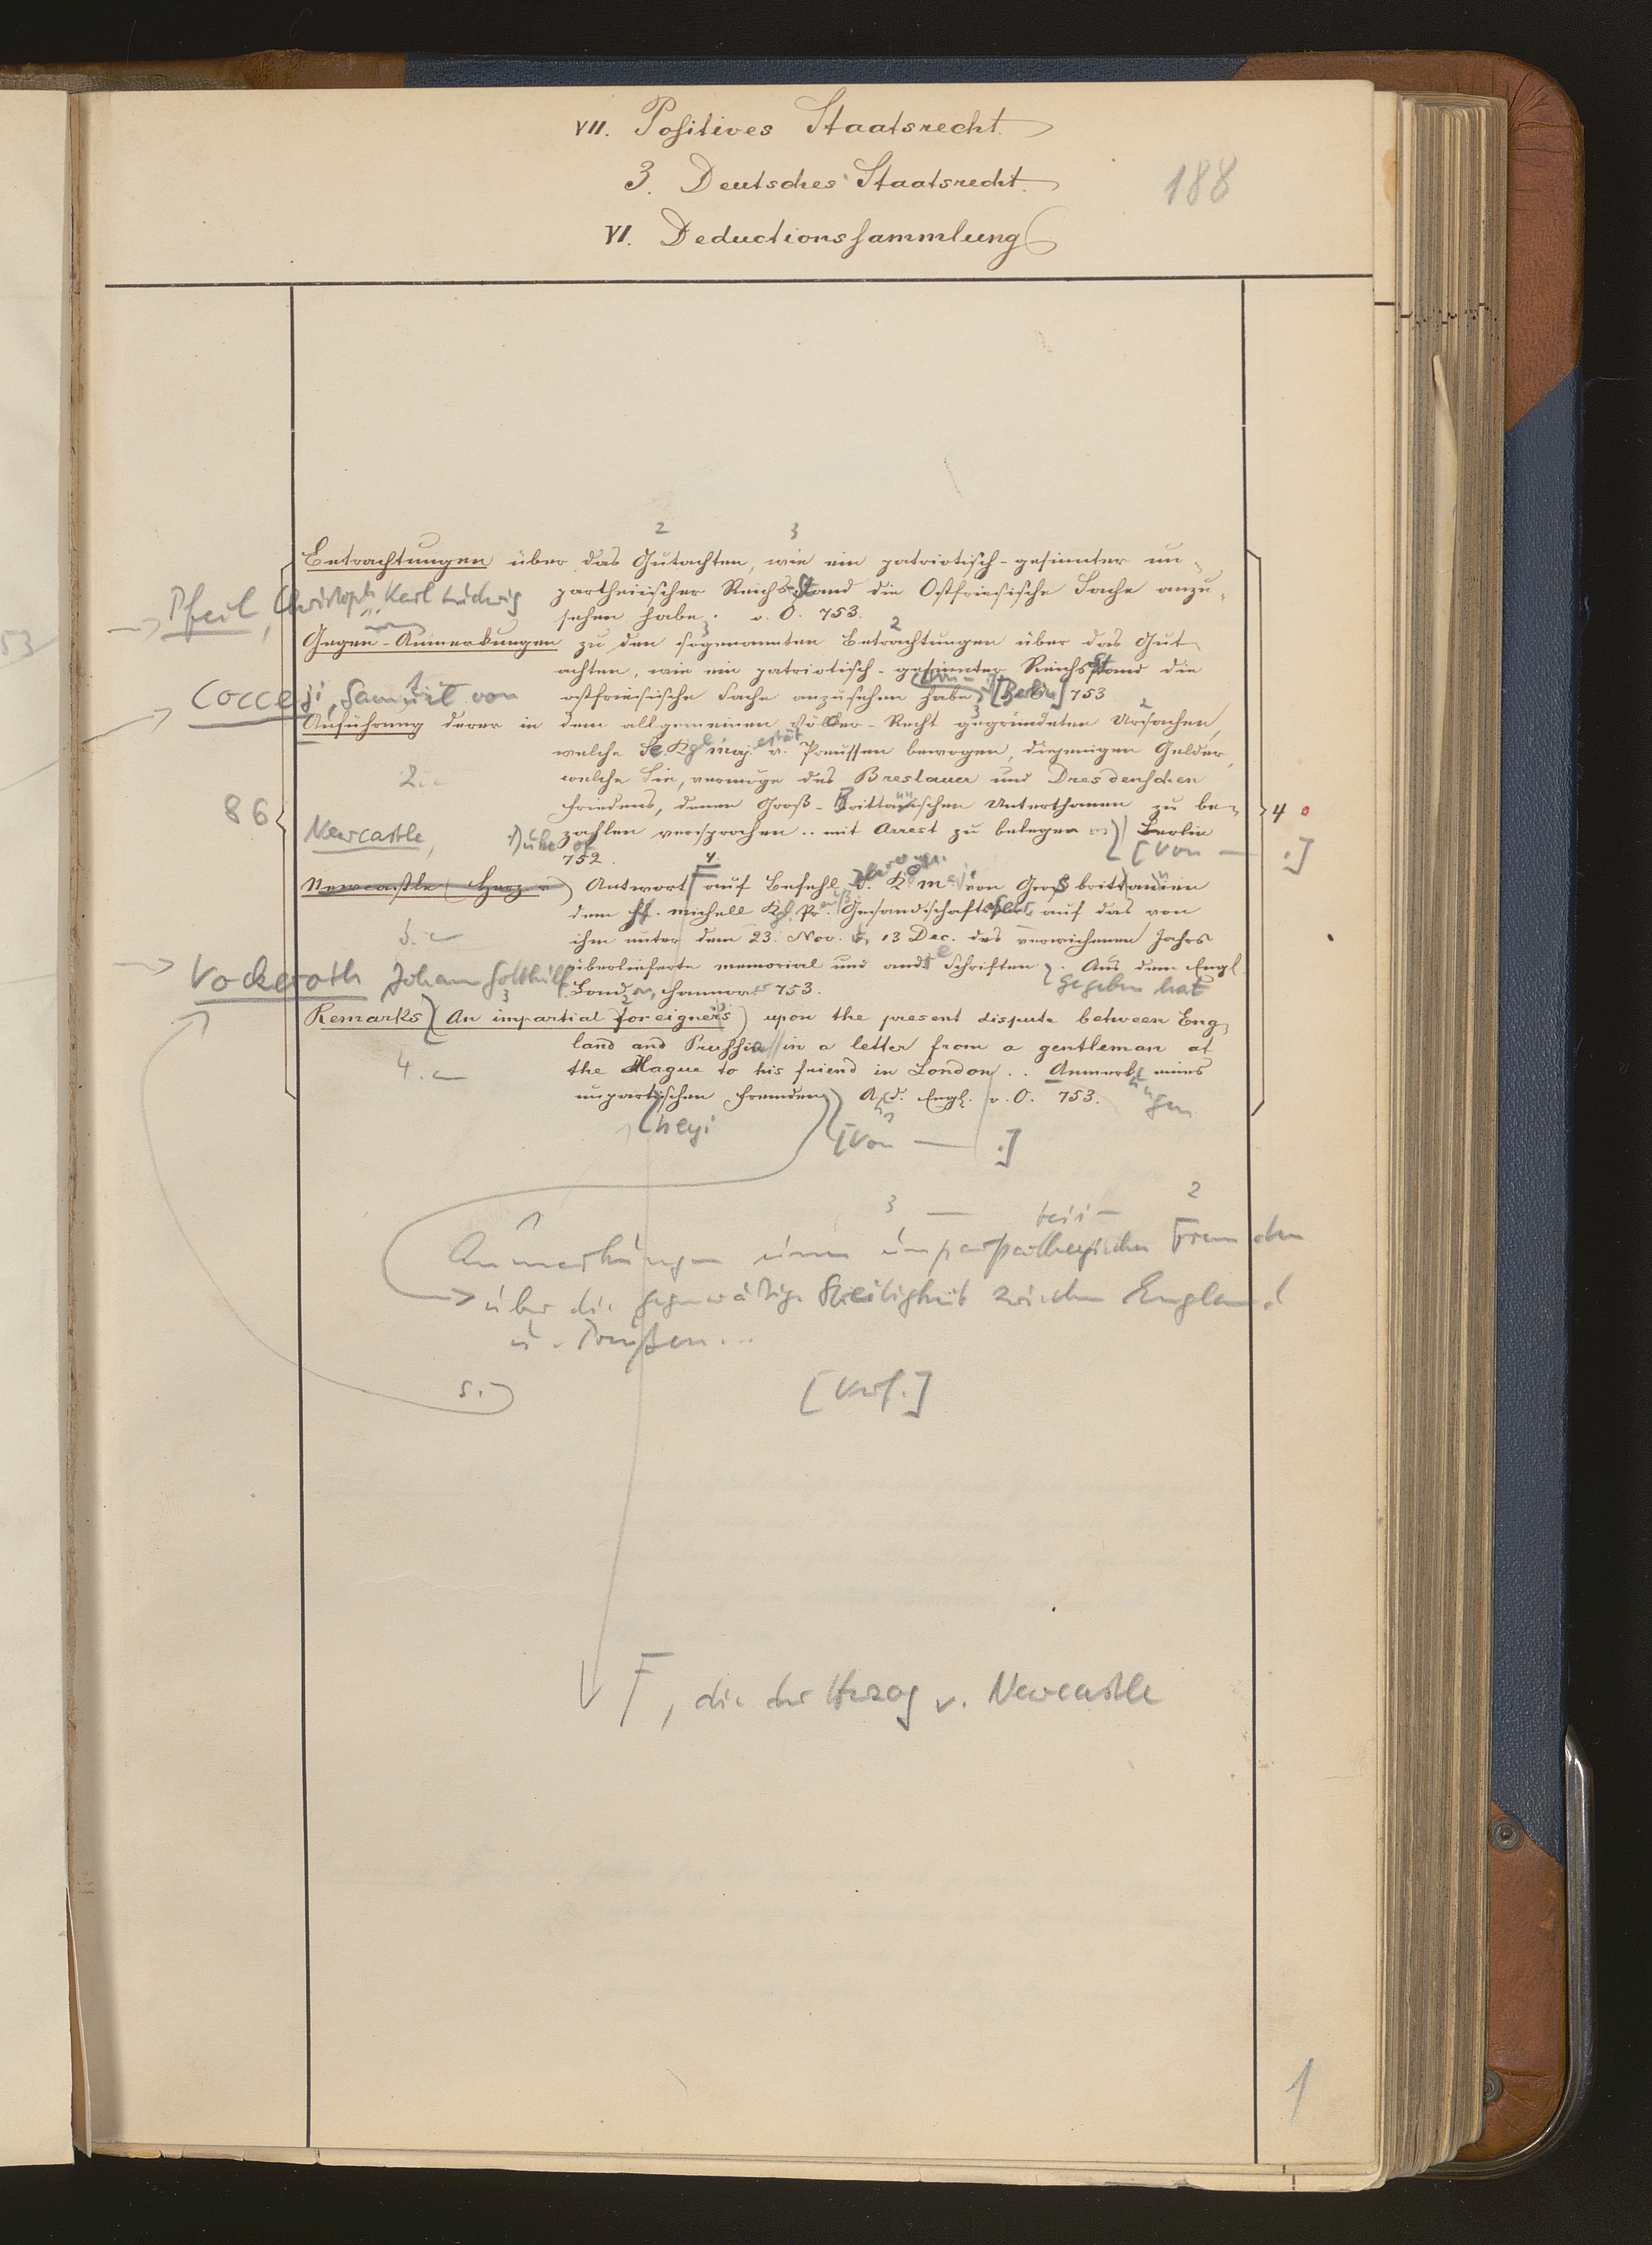 VII. Positives Staatsrecht.
3. Deutsches Staatsrecht.
188
VI. Deductionssammlung
2 3
Betrachtungen über das Gutachten, wie ein patriotisch-gesinnter un-
Pfeil, Christoph Karl Ludwig
partheiischer Reichs-Stand die Ostfriesische Sache anzu-
sehen habe. o. O. 753.
53
Gegen-Anmerkungen zu den sogenannten Betrachtungen über das Gut
achten, wie ein patriotisch-gesinnter Reichsstand die
Cocceji, Samuel von
ostfriesische Sache anzusehen habe. [Berlin] 753
Anführung derer in dem allgemeinen Völcker-Recht gegründeten Ursachen,
welche Se. Kgl. Majestät v. Preussen bewogen, diejenigen Gelder,
2.
welche Sie, vermöge des Breslauer und Dresdenschen
Friedens, denen Groß-Brittannischen Unterthanen zu be-
86
4 0
zahlen versprochen .. mit Arrest zu belegen Berlin
Newcastle,
752.
[von — .]
Newcastle (Herz. v.) Antwort auf Befehl Kön. Maj. von Großbrittannien
dem H. Michell Kgl. Preuß. Gesandschafts auf das von
3.
ihm unter dem 23. Nov. 13 Dec. des verwichenen Jahrs
überlieferte Memorial und and. Schriften. Aus dem Engl.
Vockeroth Johann Gotthilf
gegeben hat
Hannover 753.
Remarks (An impartial foreigner's) upon the present dispute between Eng-
land and Prussia in a letter from a gentleman at
4.
the Hague to his friend in London .. Anmerkungen eines
unpartheyischen Fremden A. d. Engl. o. O. 753.
[von — .]
3 2
Anmerkungen eines unpartheyischen Fremden
über die gegenwärtige Streitigkeit zwischen England
u. Preußen...
5.
[Verf.]
F, die der Herzog v. Newcastle
1